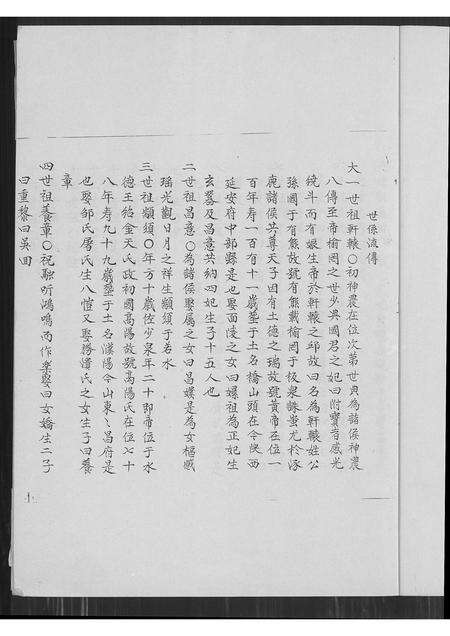 世係流傳
大一世祖軒轅〇初神農在位次第世貢為諸侯神農
八傳至帝榆罔之世少典國君之妃曰附寶者感光
繞斗而有娠生帝於軒轅之邱故曰名為軒轅姓公
孫國于有熊故號有熊戴榆罔于板泉誅蚩尤於涿
鹿諸侯共尊天子因有土德之瑞故號黃帝在位一
百年寿一百有十一歲塟于土名橋山頭在令陝西
延安府中部縣是也娶西陵之女曰嫘祖為正妃生
玄嚣及昌意共納四妃生子十五人也
二世祖昌意〇為諸侯娶属之女曰昌嫘是為女樞感
瑶光觀日月之祥生顓頊于若水
三世祖顓頊〇年方十歲佐少泉年二十即帝位于水
德王称金天氏政初國高陽故號高陽氏在位七十
八年寿九十九歲塟于土名濮陽今山東、昌府是
也娶邹氏屠氏生八愷又娶勝濆氏之女生子曰養
章
四世祖養章〇祝融听鴻鳴而作樂娶曰女嬌生二子
曰重黎曰吳回